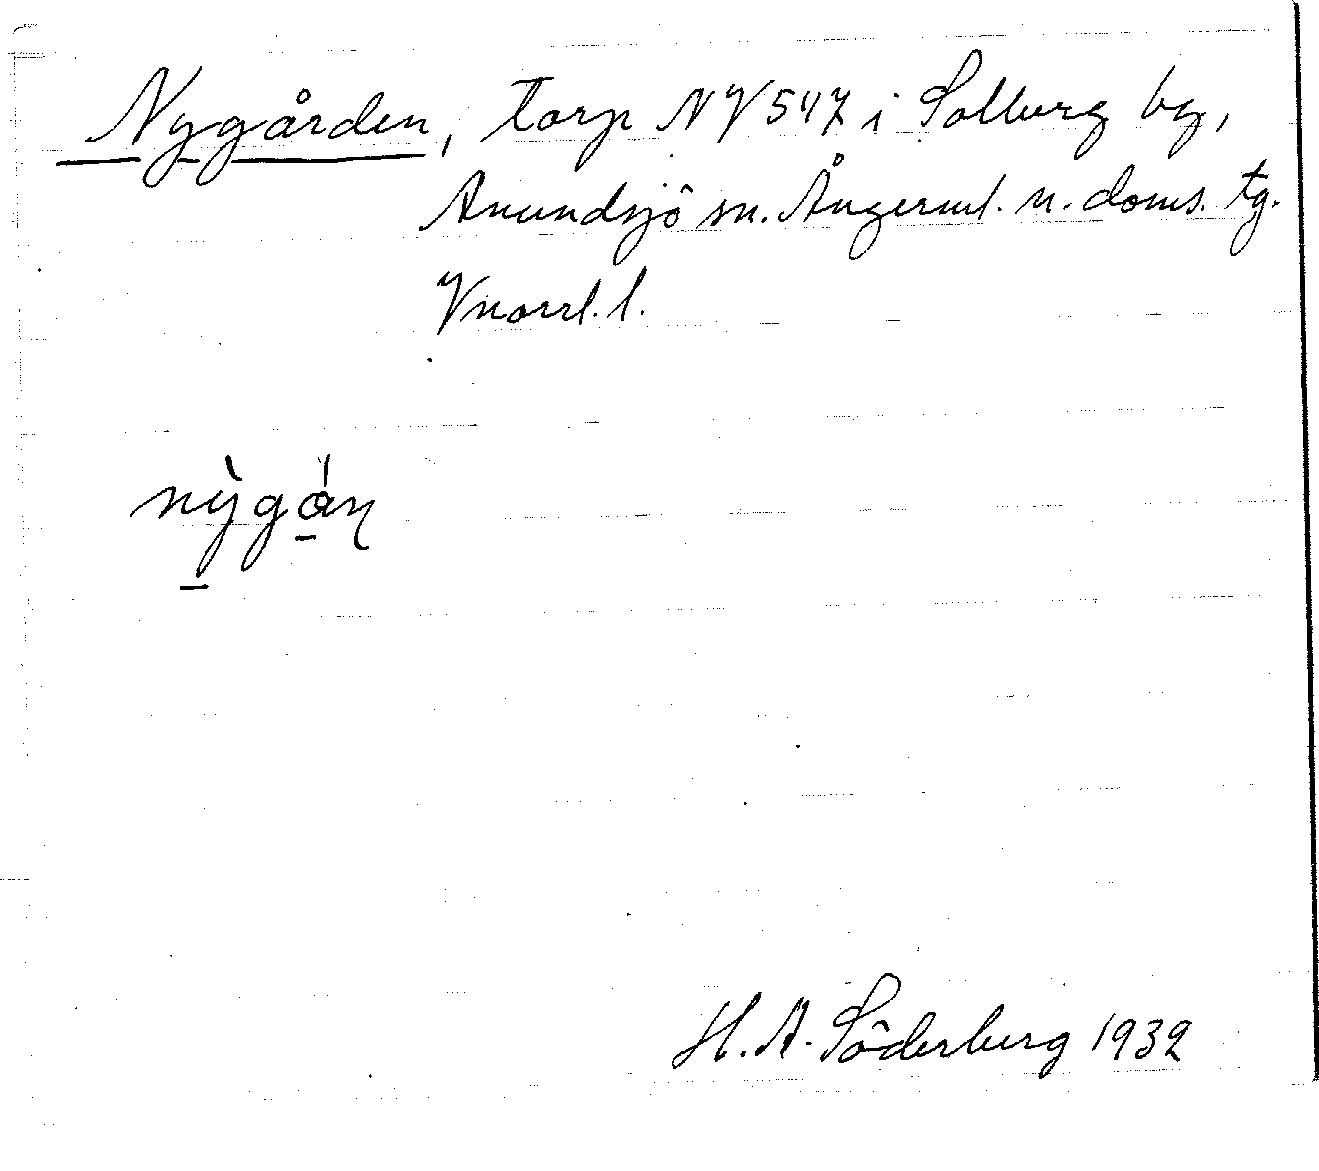 Nygården, torp NV547 i Solberg by,
Anundsjö sn. Ångerml. n. doms. tg.
Vnorrl. l.
nỳgǻɳ
H. A. Söderberg 1932